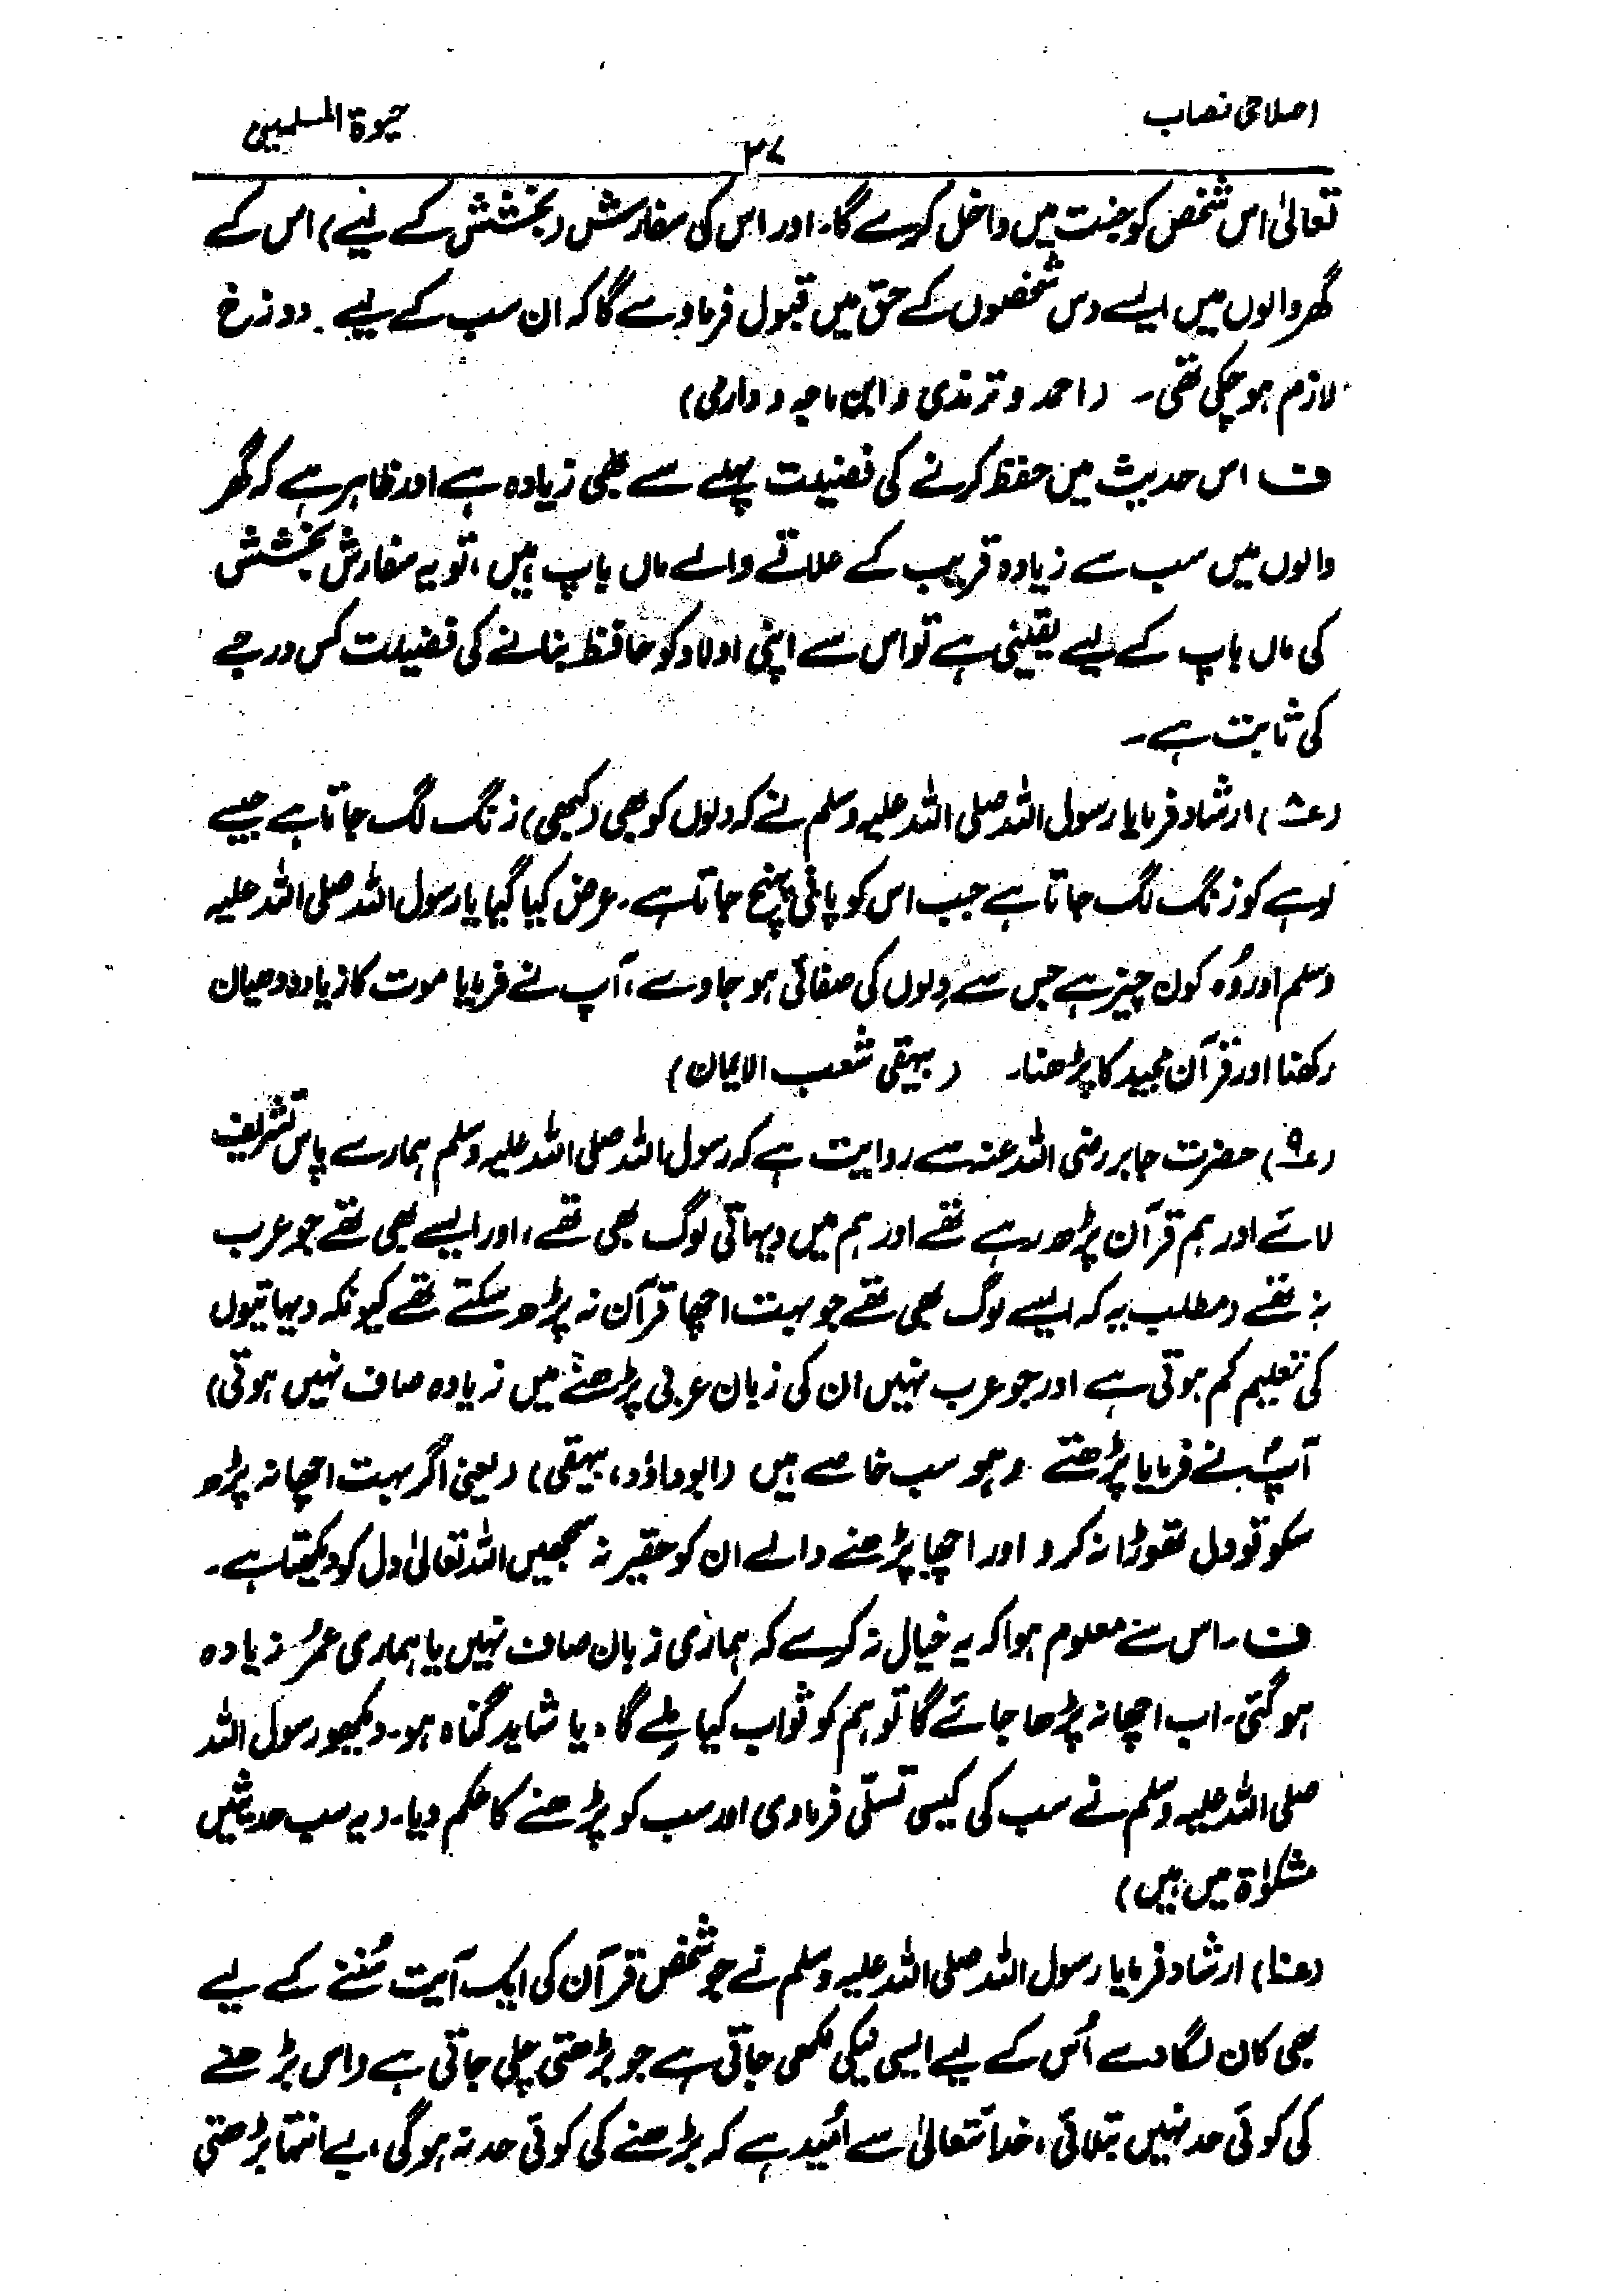 اصلاحی نصاب
۳۷
حیٰوۃ المسلمین
تعالیٰ اس شخص کو جنت میں داخل کرے گا۔ اور اس کی سفارش (بخشش کے لیے) اس کے
گھر والوں میں ایسے دس شخصوں کے حق میں قبول فرماوے گا کہ ان سب کے لیے دوزخ
لازم ہو چکی تھی۔ (احمد و ترمذی و ابن ماجہ و دارمی)
ف اس حدیث میں حفظ کرنے کی فضیلت پہلے سے بھی زیادہ ہے اور ظاہر ہے کہ گھر
والوں میں سب سے زیادہ قریب کے علاقے والے ماں باپ ہیں، تو یہ سفارش بخشش
کی ماں باپ کے لیے یقینی ہے تو اس سے اپنی اولاد کو حافظ بنانے کی فضیلت کس درجے
کی ثابت ہے۔
(۸) ارشاد فرمایا رسول اللہ صلی اللہ علیہ وسلم نے کہ دلوں کو بھی (کبھی) زنگ لگ جاتا ہے جیسے
لوہے کو زنگ لگ جاتا ہے جب اس کو پانی پہنچ جاتا ہے۔ عرض کیا گیا یا رسول اللہ صلی اللہ علیہ
وسلم اور وُہ کون چیز ہے جس سے دِلوں کی صفائی ہو جاوے، آپ نے فرمایا موت کا زیادہ دھیان
رکھنا اور قرآن مجید کا پڑھنا۔ (بیہقی شعب الایمان)
(۹) حضرت جابر رضی اللہ عنہ سے روایت ہے کہ رسول اللہ صلی اللہ علیہ وسلم ہمارے پاس تشریف
لائے اور ہم قرآن پڑھ رہے تھے اور ہم میں دیہاتی لوگ بھی تھے، اور ایسے بھی تھے جو عرب
نہ تھے (مطلب یہ کہ ایسے لوگ بھی تھے جو بہت اچھا قرآن نہ پڑھ سکتے تھے کیونکہ دیہاتیوں
کی تعلیم کم ہوتی ہے اور جو عرب نہیں ان کی زبان عربی پڑھنے میں زیادہ صاف نہیں ہوتی)
آپؐ نے فرمایا پڑھتے رہو سب خاصے ہیں (ابوداؤد، بیہقی) (یعنی اگر بہت اچھا نہ پڑھ
سکو تو دل تھوڑا نہ کرو اور اچھا پڑھنے والے ان کو حقیر نہ سمجھیں اللہ تعالیٰ دل کو دیکھتا ہے۔
ف۔ اس سے معلوم ہوا کہ یہ خیال نہ کرے کہ ہماری زبان صاف نہیں یا ہماری عمرُ زیادہ
ہو گئی۔ اب اچھا نہ پڑھا جائے گا تو ہم کو ثواب کیا ملے گا، یا شاید گناہ ہو۔ دیکھو رسول اللہ
صلی اللہ علیہ وسلم نے سب کی کیسی تسلّی فرمادی اور سب کو پڑھنے کا حکم دیا۔ (یہ سب حدیثیں
مشکوٰۃ میں ہیں)
(۱۰) ارشاد فرمایا رسول اللہ صلی اللہ علیہ وسلم نے جو شخص قرآن کی ایک آیت سُننے کے لیے
بھی کان لگا دے اُس کے لیے ایسی نیکی لکھی جاتی ہے جو بڑھتی چلی جاتی ہے (اس بڑھنے
کی کوئی حد نہیں بتلائی، خدا تعالیٰ سے اُمید ہے کہ بڑھنے کی کوئی حد نہ ہو گی، بے انتہا بڑھتی